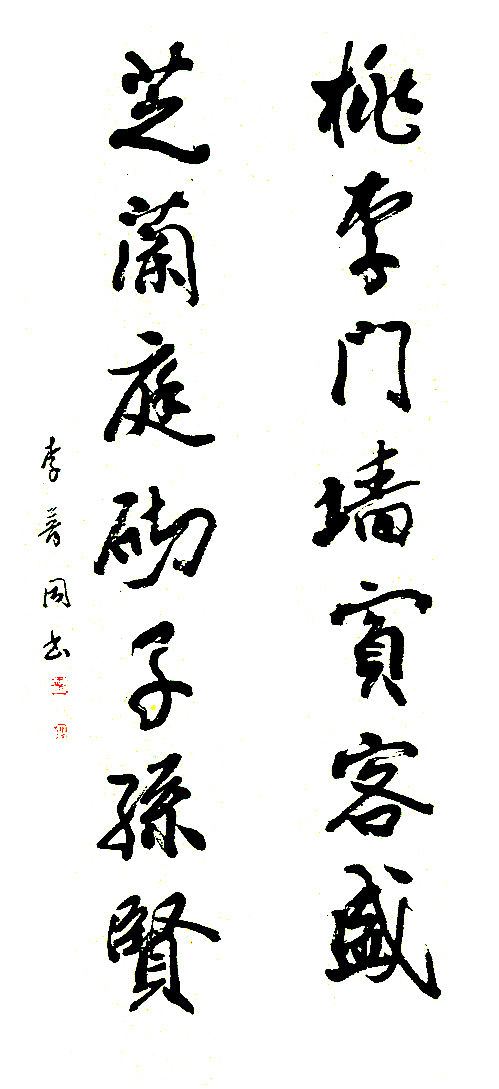 桃李门墙賓客盛
芝蘭庭砌子孫賢
李普同书